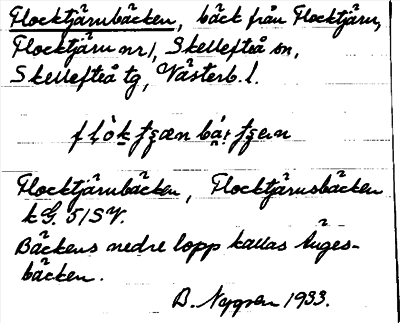 Flocktjärnbäcken, bäck från Flocktjärn,
Flocktjärn nr 1, Skellefteå sn,
Skellefteå tg, Västerb. l.
Flocktjärnbäcken, Flocktjärnsbäcken
k G. 51 SV.
Bäckens nedre lopp kallas Änges-
bäcken.
B. Nygren 1933.